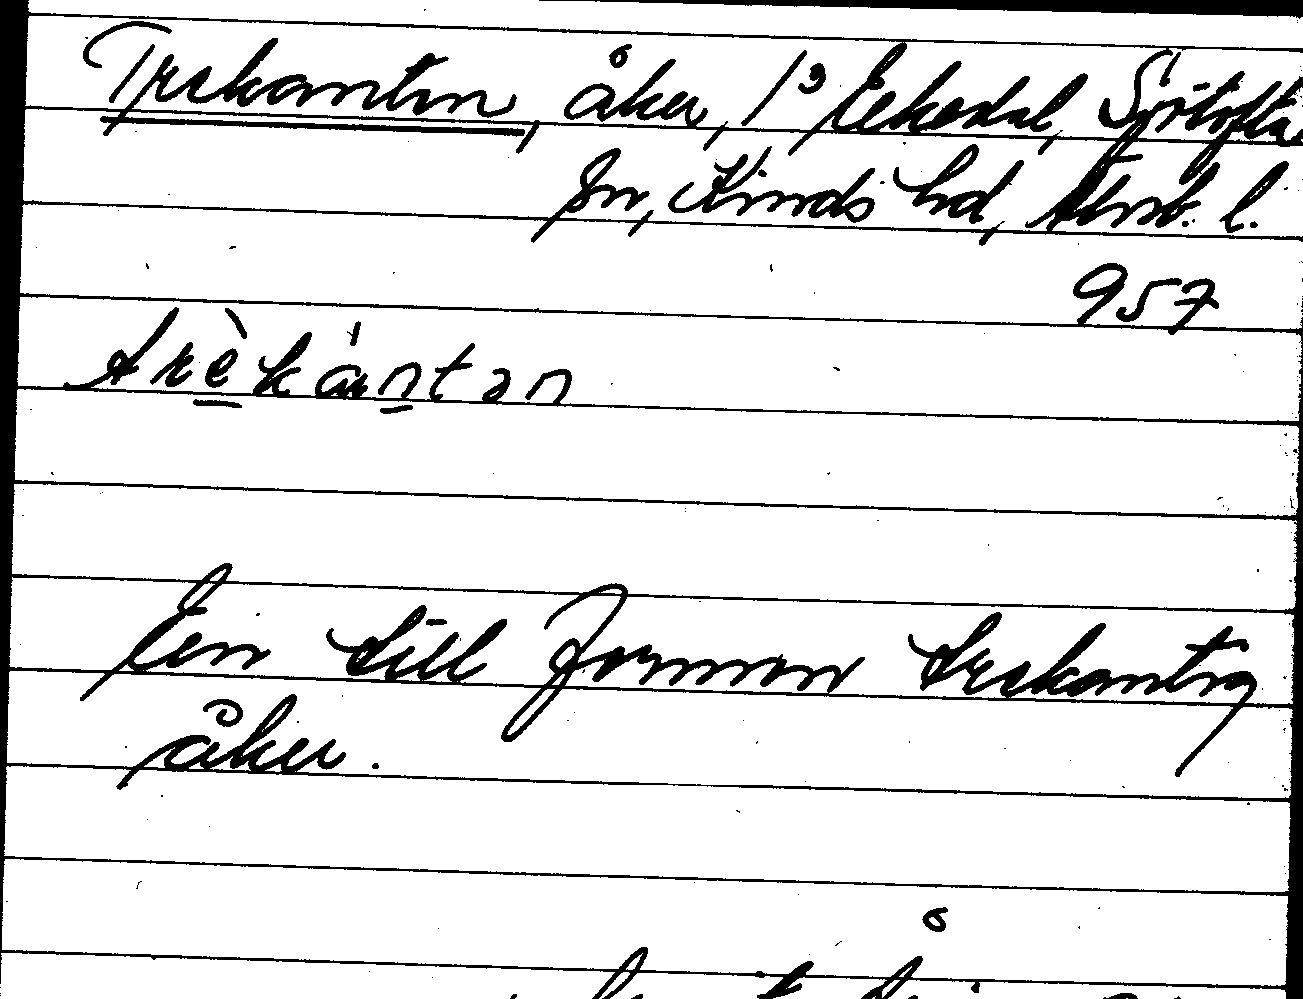 Trekanten, åker, 1³ Eekedal, Sjötofta
sn, Kinds hd, Älvsb. l.
957
trèkántən
En till formen trekantig
åker.